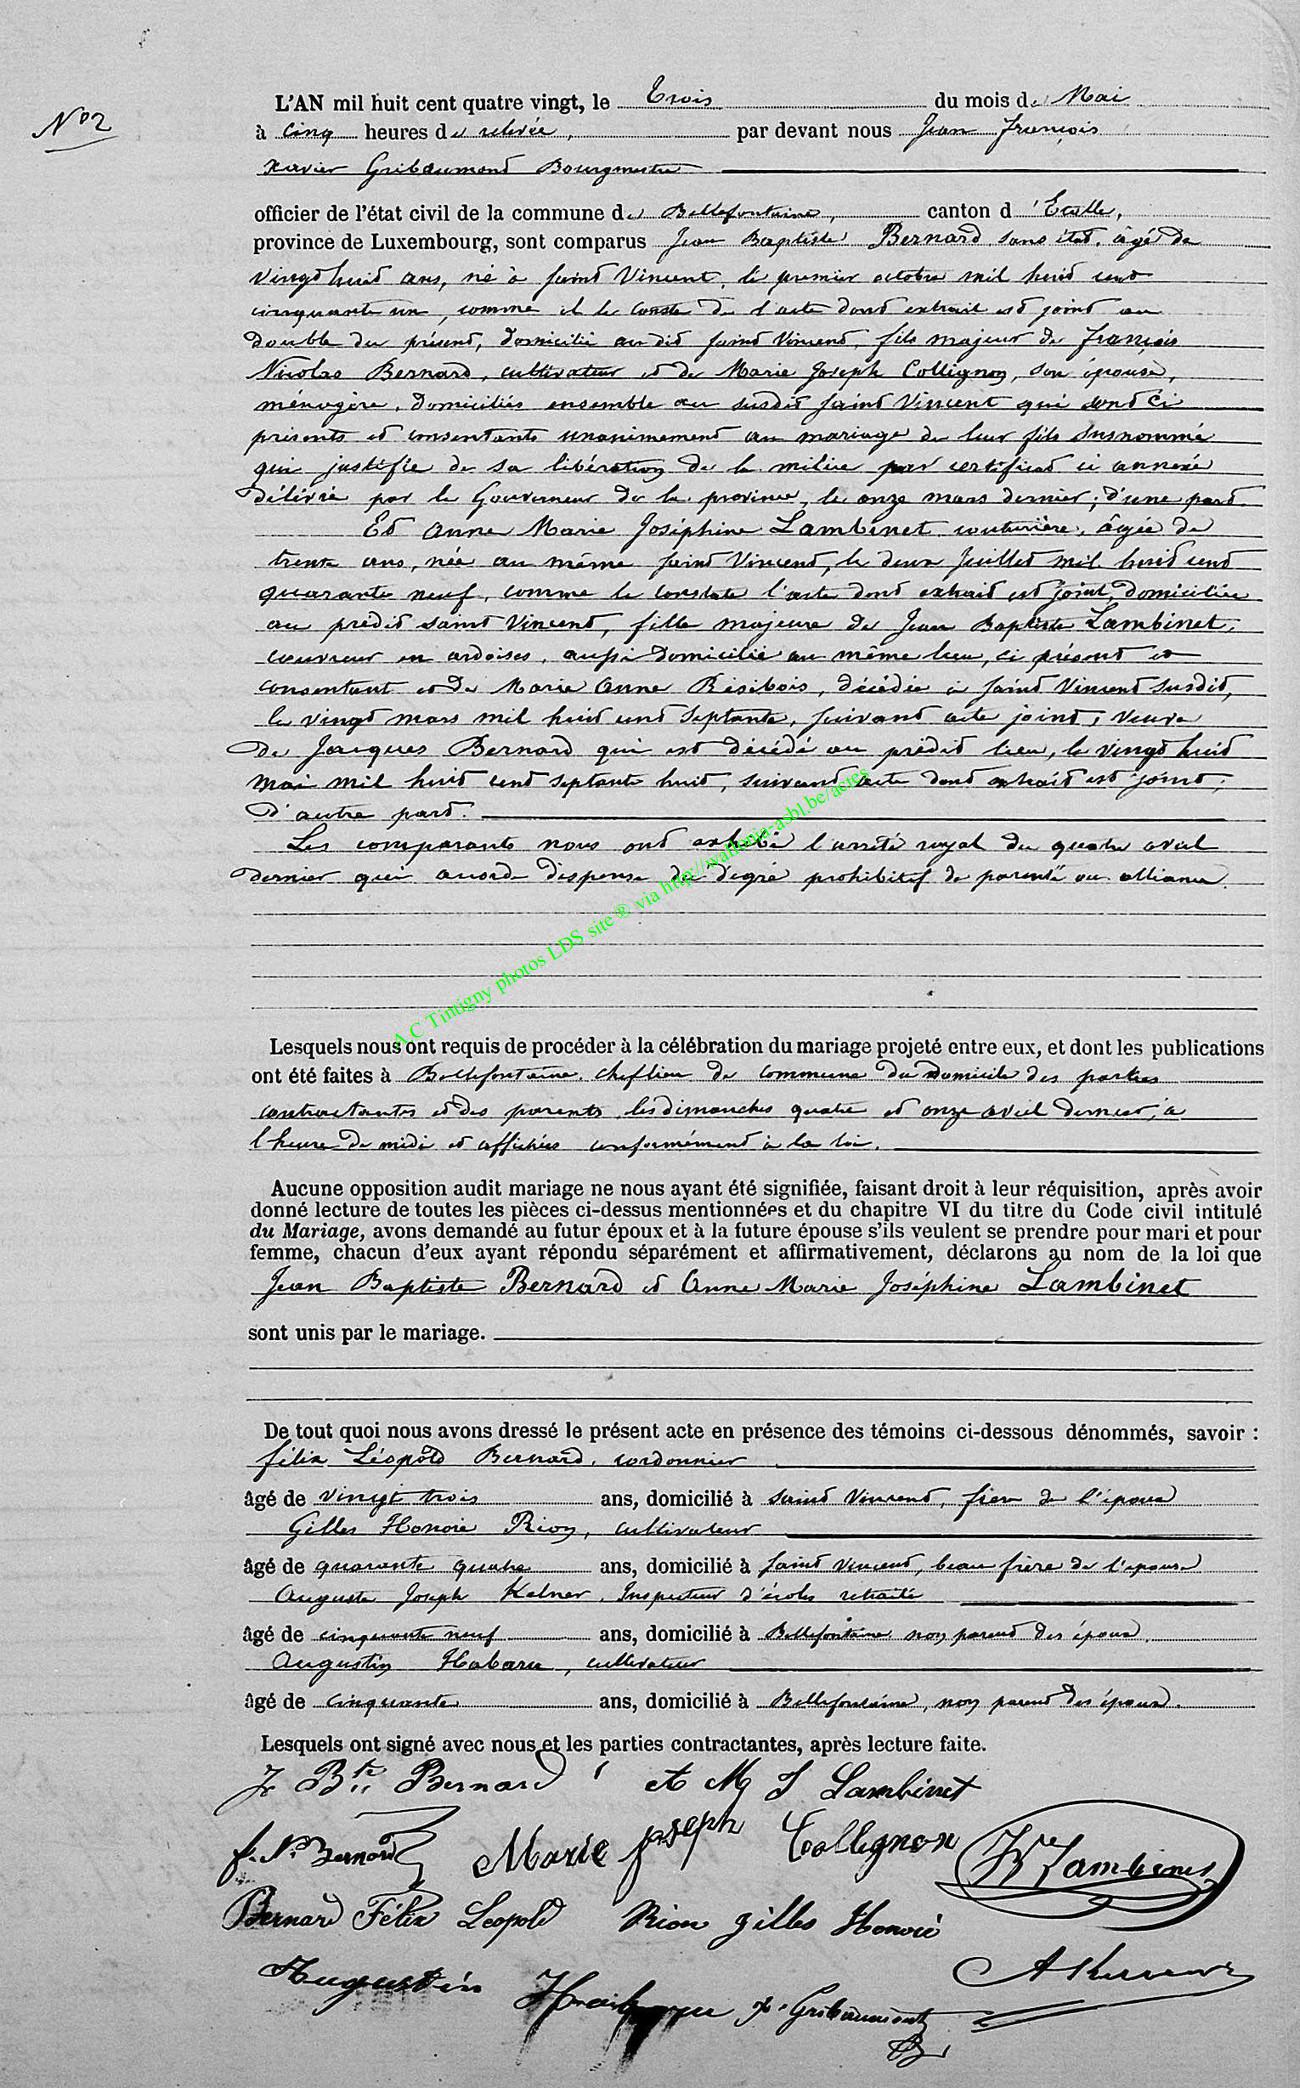 N° 2
L'AN mil huit cent quatre vingt, le Trois du mois de Mai
à cinq heures de relevée, par devant nous Jean François
Xavier Gribaumont Bourgmestre
officier de l'état civil de la commune de Bellefontaine, canton d'Etalle,
province de Luxembourg, sont comparus Jean Baptiste Bernard sans état, âgé de
vingt huit ans, né à Saint Vincent, le premier octobre mil huit cent
cinquante un, comme il le conste de l'acte dont extrait est joint au
double du présent, domicilié au dit Saint Vincent, fils majeur de François
Nicolas Bernard, cultivateur et de Marie Joseph Collignon, son épouse,
ménagère, domiciliés ensemble au susdit Saint Vincent qui sont ci
présents et consentants unanimement au mariage de leur fils susnommé
qui justifie de sa libération de la milice par certificat ci annexé
délivré par le Gouverneur de la province, le onze mars dernier; d'une part.
Et Anne Marie Joséphine Lambinet couturière, âgée de
trente ans, née au même Saint Vincent, le deux Juillet mil huit cent
quarante neuf, comme le constate l'acte dont extrait est joint, domiciliée
au prédit Saint Vincent, fille majeure de Jean Baptiste Lambinet,
couvreur en ardoises, aussi domicilié au même lieu, ci présent et
consentant et de Marie Anne Résibois, décédée à Saint Vincent susdit,
le vingt mars mil huit cent septante, suivant acte joint; veuve
de Jacques Bernard qui est décédé au prédit lieu, le vingt huit
mai mil huit cent septante huit, suivant acte dont extrait est joint;
d'autre part.
Les comparants nous ont exhibé l'arrêté royal du quatre avril
dernier qui accorde dispense de dégré prohibitif de parenté ou alliance.
A.C Tintigny photos LDS site® via http://wallonia-asbl.be/actes
Lesquels nous ont requis de procéder à la célébration du mariage projeté entre eux, et dont les publications
ont été faites à Bellefontaine, chef lieu de commune du domicile des parties
contractantes et des parents les dimanches quatre et onze avril dernier, à
l'heure de midi et affichées conformément à la loi.
Aucune opposition audit mariage ne nous ayant été signifiée, faisant droit à leur réquisition, après avoir
donné lecture de toutes les pièces ci-dessus mentionnées et du chapitre VI du titre du Code civil intitulé
du Mariage, avons demandé au futur époux et à la future épouse s'ils veulent se prendre pour mari et pour
femme, chacun d'eux ayant répondu séparément et affirmativement, déclarons au nom de la loi que
Jean Baptiste Bernard et Anne Marie Joséphine Lambinet
sont unis par le mariage.
De tout quoi nous avons dressé le présent acte en présence des témoins ci-dessous dénommés, savoir :
Félix Léopold Bernard, cordonnier
âgé de vingt trois ans, domicilié à Saint Vincent, frère de l'époux
Gilles Honoré Rion, cultivateur
âgé de quarante quatre ans, domicilié à Saint Vincent, beau frère de l'épouse
Auguste Joseph Kelner, Inspecteur d'écoles retraité
âgé de cinquante neuf ans, domicilié à Bellefontaine non parent des époux.
Augustin Habaru, cultivateur
âgé de cinquante ans, domicilié à Bellefontaine, non parent des époux.
Lesquels ont signé avec nous et les parties contractantes, après lecture faite.
J. Bte Bernard et M J Lambinet
f. N. Bernard Marie joseph Collignon JB Lambinet
Bernard Félix Léopold Rion gilles Honoré
Augustin Habaru X. Gribaumont